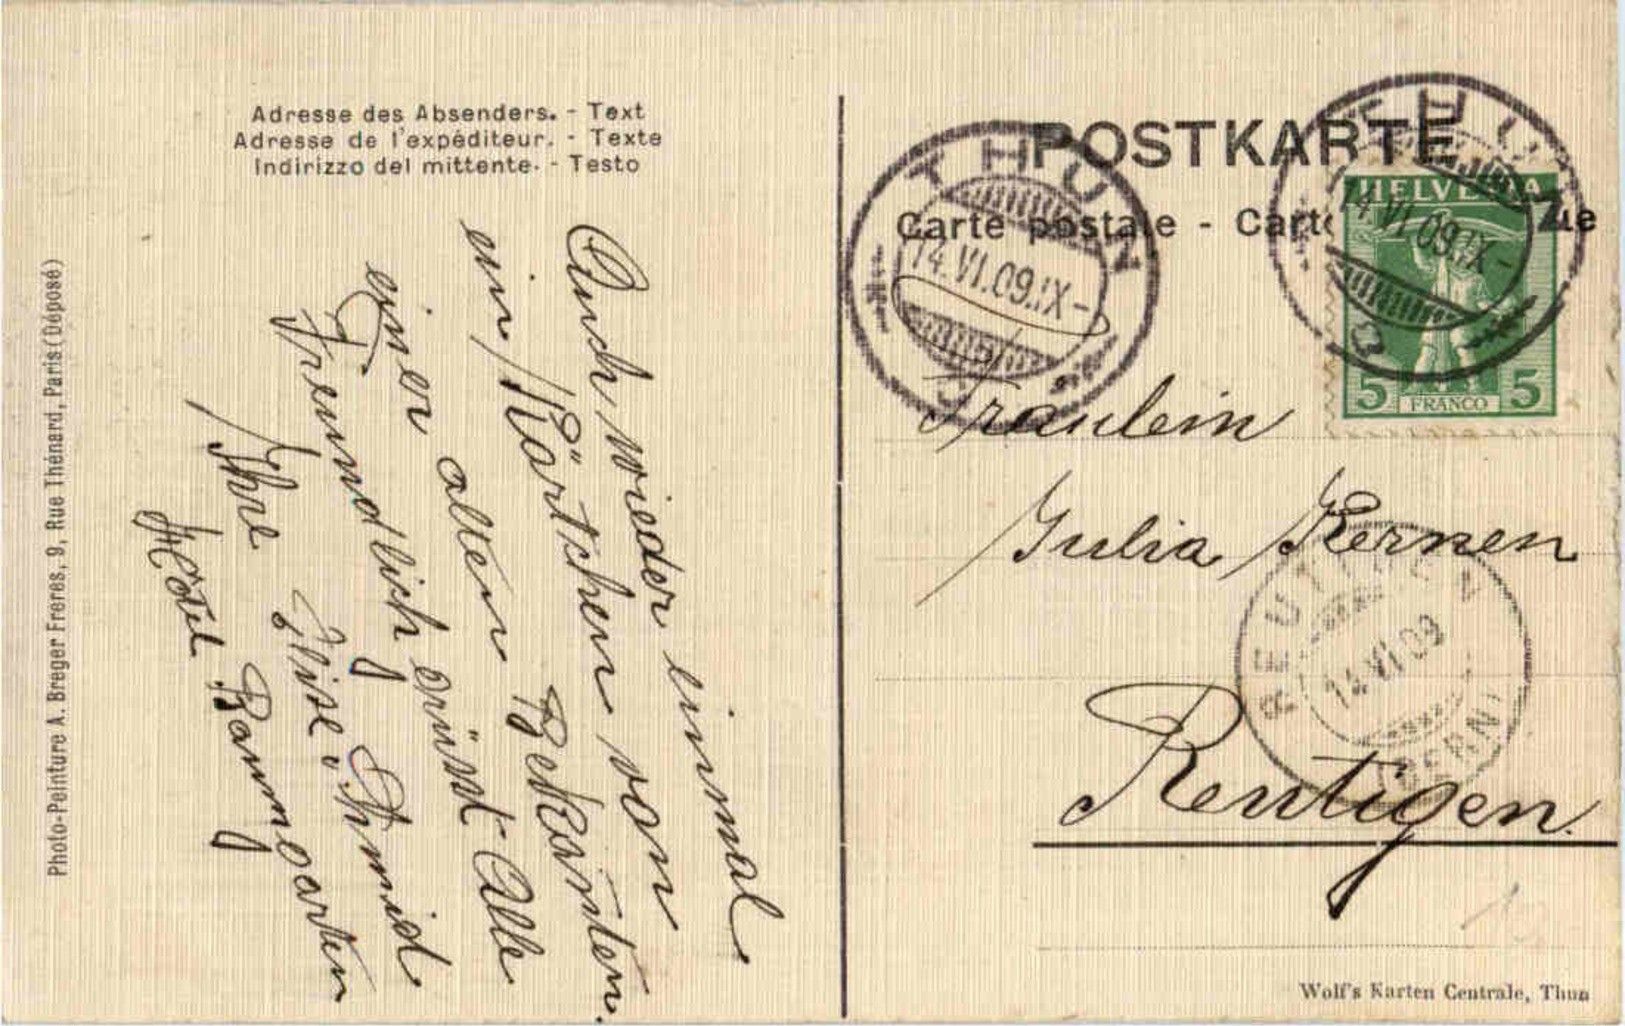 Adresse des Absenders. - Text
Adresse de l'expéditeur. - Texte
Indirizzo del mittente. - Testo
Auch wieder einmal
ein Kärtchen von
einer alten Bekannten.
Freundlich grüsst Alle
Ihre Elise Schmid
Hôtel Baumgarten
Photo-Peinture A. Breger Freres, 9, Rue Thénard, Paris (Déposé)
POSTKARTE
Carte postale -
THUN
14.VI.09.IX-
THUN
14.VI.09.IX-
HELVETIA
5 FRANCO 5
Fräulein
Julia Kernen
Reutigen.
REUTIGEN
14.VI.09
(BERN)
Wolf's Karten Centrale, Thun